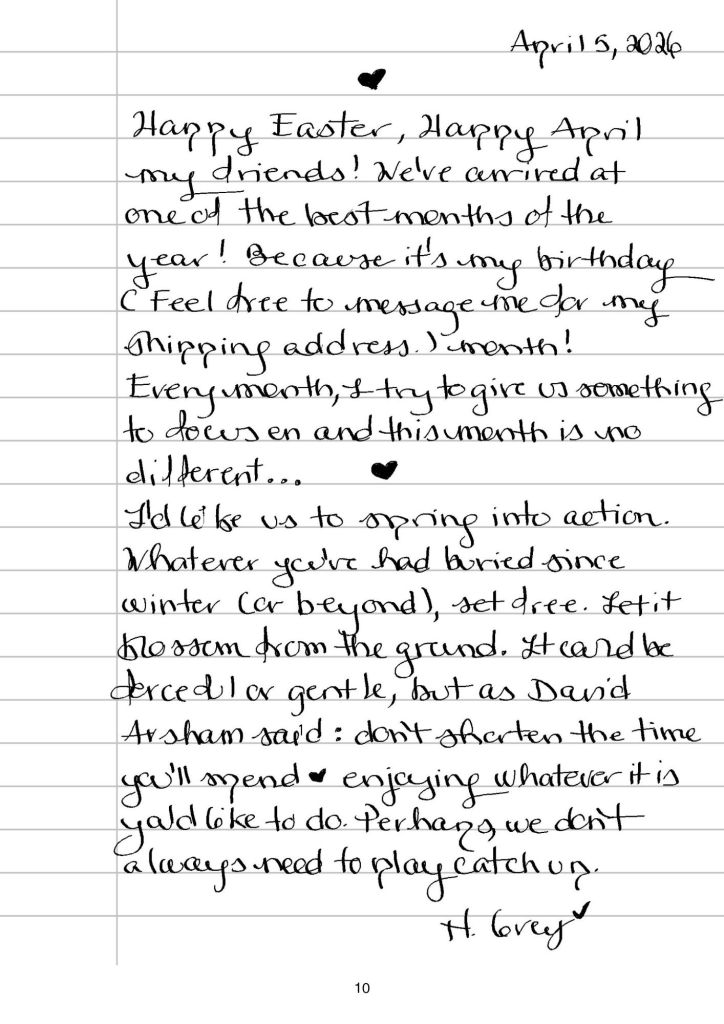 April 5, 2026
Happy Easter, Happy April
my friends! We've arrived at
one of the best months of the
year! Because it's my birthday
(Feel free to message me for my
shipping address.) month!
Every month, I try to give us something
to focus on and this month is no
different...
I'd like us to spring into action.
Whatever you've had buried since
winter (or beyond), set free. Let it
blossom from the ground. It could be
forceful or gentle, but as David
Arsham said: don't shorten the time
you'll spend enjoying whatever it is
you'd like to do. Perhaps, we don't
always need to play catch up.
H. Grey
10